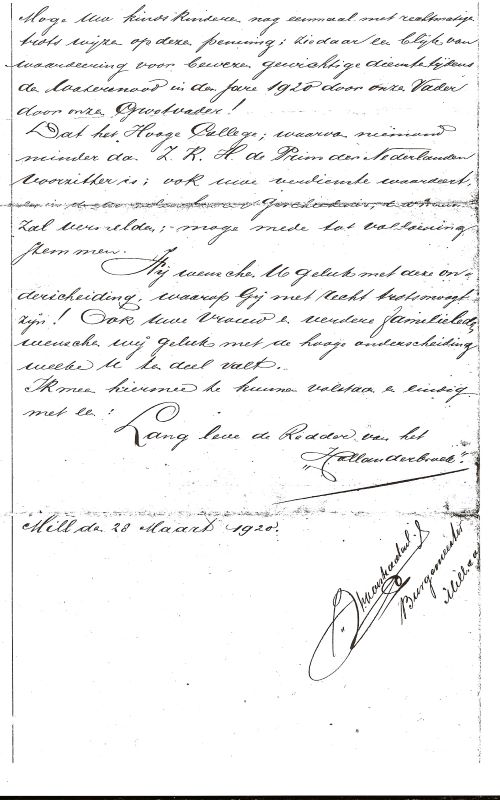 Moge Uw kindskinderen nog eenmaal met rechtmatige
trots wijzen op dezen penning; ziedaar een blijk van
waardeering voor bewezen gewichtige diensten tijdens
de Watersnood in den jare 1920 door onze Vader
door onze Grootvader!
Dat het Hooge College, waarvan niemand
minder dan Z. K. H. de Prins der Nederlanden
Voorzitter is; ook uwe verdienste waardeert,
en in de Geschiedenis,
zal vermelden; moge mede tot voldoening
stemmen.
Wij wenschen U geluk met deze on-
derscheiding, waarop Gij met recht trots moogt
zijn! Ook Uwe Vrouw en verdere familieleden
wenschen wij geluk met de hooge onderscheiding
welke U ten deel valt.
Ik meen hiermee te kunnen volstaan en eindig
met een:
Lang leve de Redder van het
"Hollanderbroek".
Mill den 28 Maart 1920.
Burgemeester
Mill